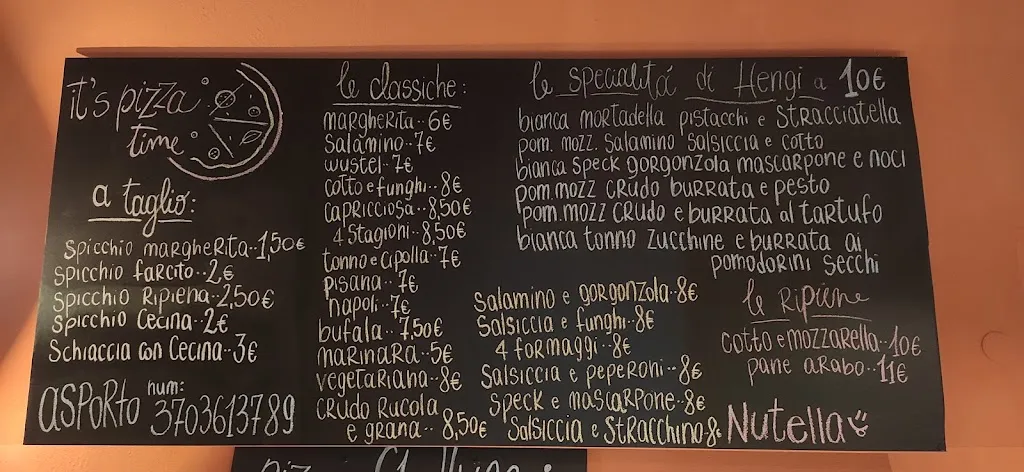 it's pizza
time
a taglio:
Spicchio margherita-1,50€
Spicchio farcito··2€
Spicchio Ripiena-2,50€
Spicchio Cecina··2€
Schiaccia con Cecina··3€
ASPORTO num:
3703613789
le classiche:
margherita··6€
Salamino··7€
wustel··7€
cotto e funghi··8€
capricciosa··8,50€
4 Stagioni··8,50€
tonno e cipolla··7€
pisana··7€
napoli··7€
bufala··7,50€
marinara··5€
vegetariana··8€
crudo Rucola
e grana··8,50€
Salamino e gorgonzola··8€
Salsiccia e funghi··8€
4 formaggi··8€
Salsiccia e peperoni··8€
Speck e mascarpone··8€
Salsiccia e Stracchino 8€
le specialitá di Hengi a 10€
bianca mortadella pistacchi e Stracciatella
pom. mozz. Salamino Salsiccia e cotto
bianca Speck gorgonzola mascarpone e noci
pom.mozz crudo burrata e pesto
pom.mozz crudo e burrata al tartufo
bianca tonno zucchine e burrata ai
pomodorini secchi
le Ripiene
cotto e mozzarella··10€
pane arabo··11€
Nutella